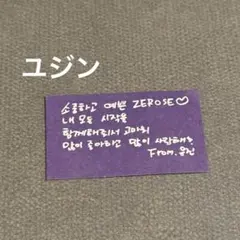 ユジン
소중하고 예쁜 ZEROSE♡
내 모든 시작을
함께해줘서 고마워
많이 좋아하고 많이 사랑해요
From. 유진